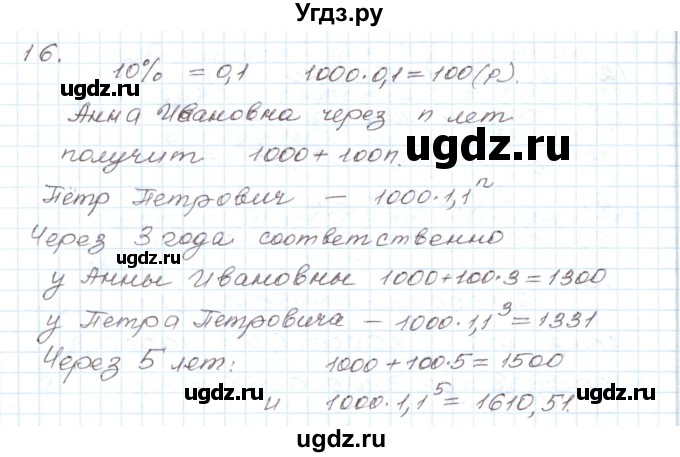 Угдз.ру
16.
10% = 0,1 1000·0,1=100(р).
угдз.ру
Анна Ивановна через n лет
получит 1000+100n.
угдз.ру
Пётр Петрович – 1000·1,1ⁿ
Через 3 года соответственно
у Анны Ивановны 1000+100·3=1300
у Петра Петровича – 1000·1,1³=1331
Через 5 лет: 1000+100·5=1500
угдз.ру
и 1000·1,1⁵=1610,51.
угдз.ру